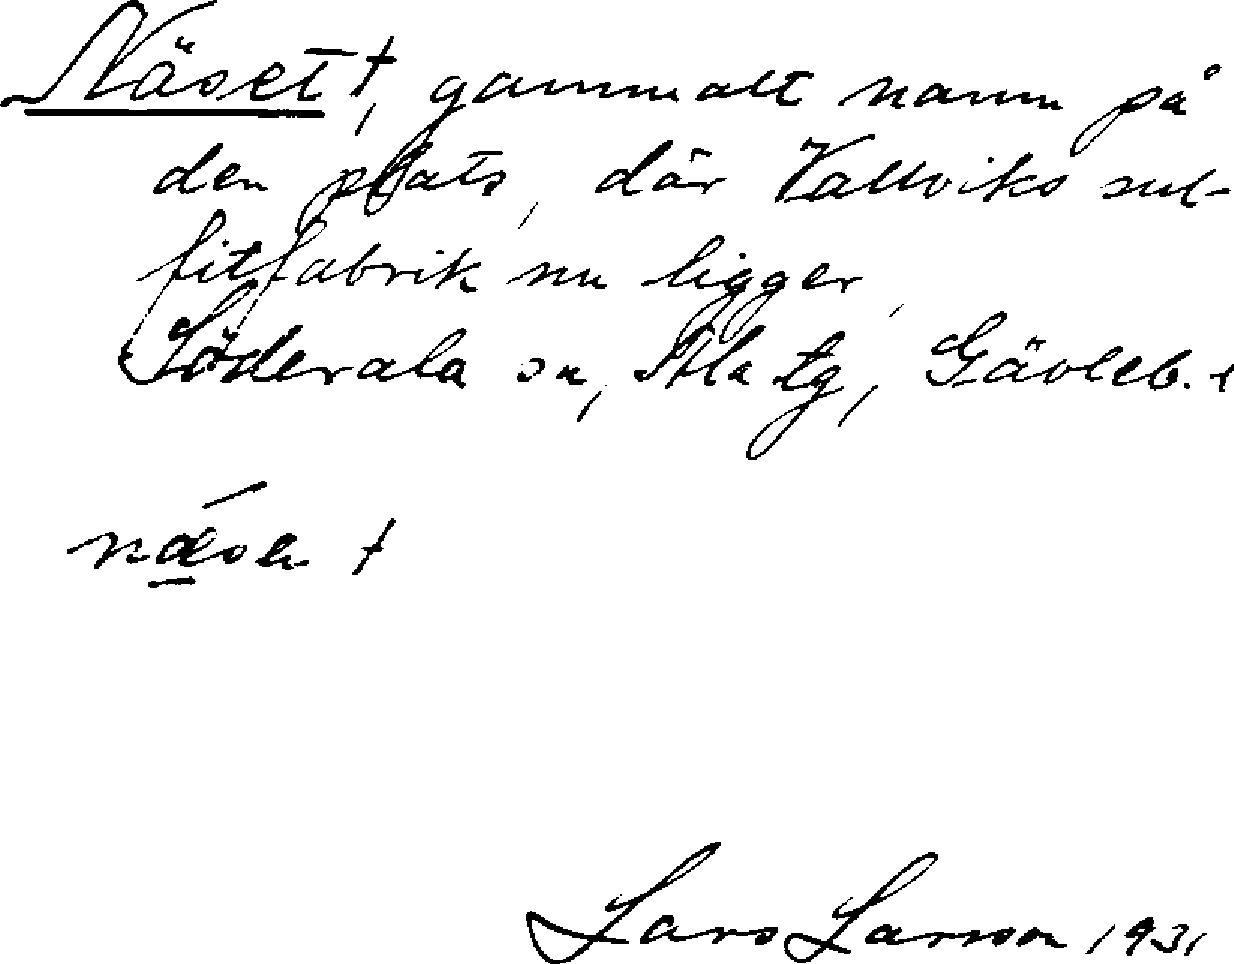 Näset †, gammalt namn på
den plats, där Vallviks sul-
fitfabrik nu ligger,
Söderala sn, Ala tg, Gävleb. l
Lars Larsson 1931